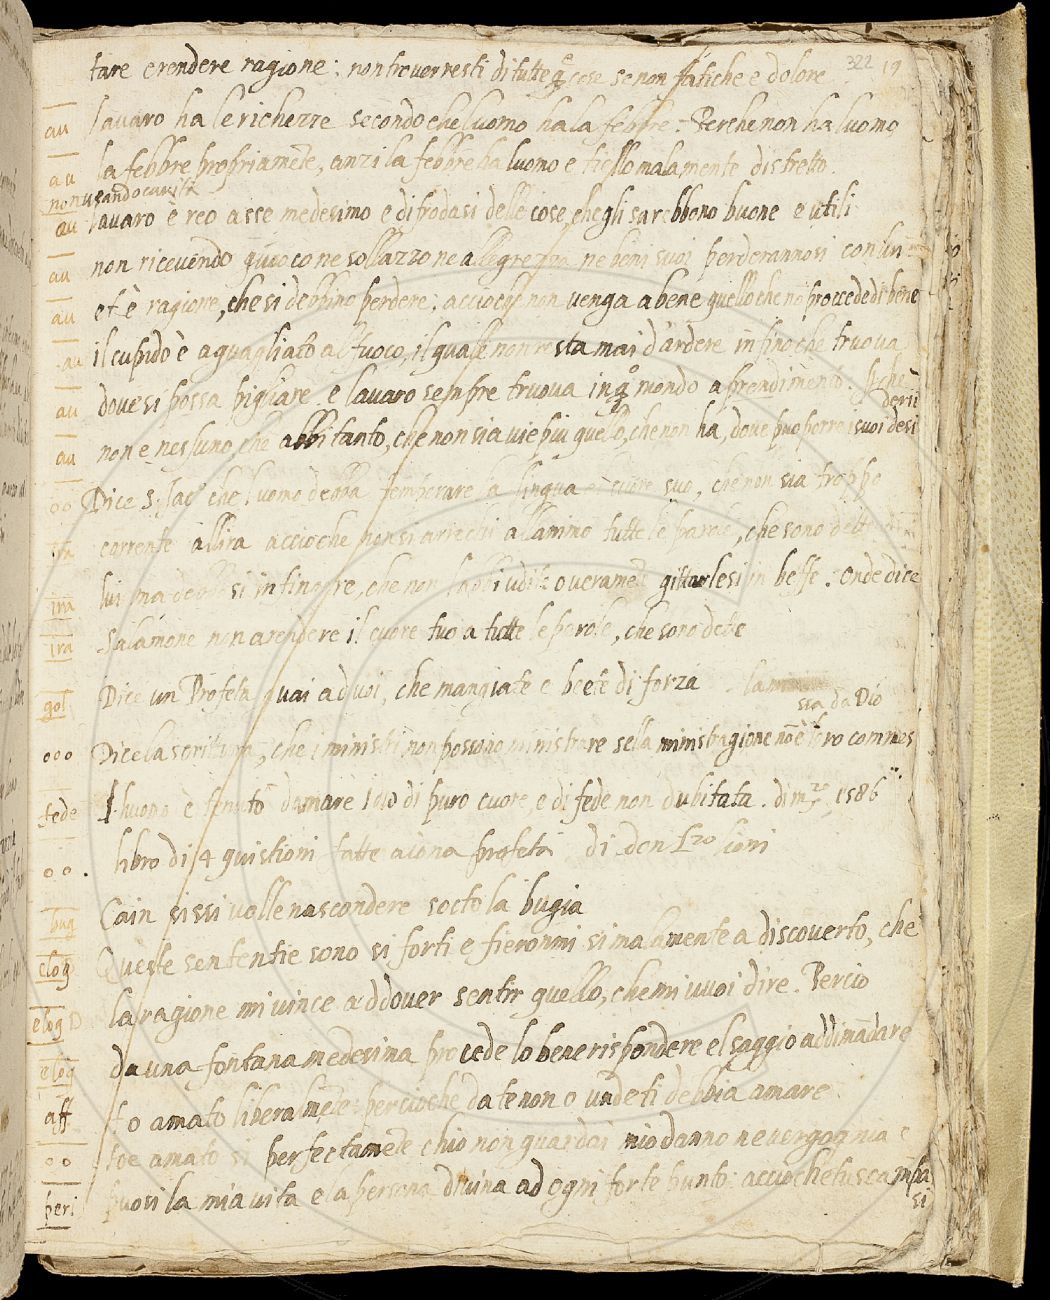 322 19
tare e rendere ragione: non trovorresti di tutte q̃e cose se non fatiche e dolore
au lavaro ha le richezze secondo che luomo ha la febbre: Perche non ha luomo
au la febbre propriamẽte, anzi la febbre ha luomo e tiello malamente distretto.
non usando
au lavaro è reo asse medesimo e difrodasi delle cose, che gli sarebbono buone e utili
au non ricevendo giuoco ne sollazzo ne allegrezza ne beni suoi perderannosi con lui
au et è ragione, che si debbino perdere: accioche non venga a bene quello che nõ proccede di bene
au il cupido è aguagliato al fuoco, il quale non resta mai d'ardere in fino che truova
au dove si possa pigliare e lavaro sempre truova in q̃o mondo aprendimento.
au non e nessuno, che abbi tanto, che non sia vie piu quello, che non ha, dove puo porre i suoi desi
derii
oo Dice S. Iac che luomo debba temperare la lingua suo, che non sia troppo
ira corrente allira accioche non si arrechi allanimo tutte le parole, che sono dette
ira lui ma debbesi infingere, che non habbi udite overamẽte gittarlesi in beffe. Onde dice
ira Salamone non arendere il cuore tuo a tutte le parole, che sono dette
gol Dice un Profeta guai ad voi, che mangiate e beete di forza
ooo Dice la scrittura, che i ministri non possono ministrare se la ministragione nõ è loro commes
ssa da Dio
fede Lhuomo è tenuto damare Idio di puro cuore, e di fede non dubitata. di mzo 1586
oo libro di 4 quistioni fatte a profeta di den Lzo
bug Cain sissi volle nascondere socto la bugia
eloq Queste sententie sono si forti e fieronmi si malamente a discoverto, che
eloq la ragione mi vince addover sentir quello, che mi vuoi dire. Percio
eloq da una fontana medesima procede lo bene rispondere el saggio addimãdare
aff to amato liberalmẽte: percioche da te non o unde ti debbia amare
oo toe amato si perfectamẽte chio non guardai mio danno ne vergognia e
peri puosi la mia vita e la persona divina ad ogni forte punto: accioche tu scampa
si